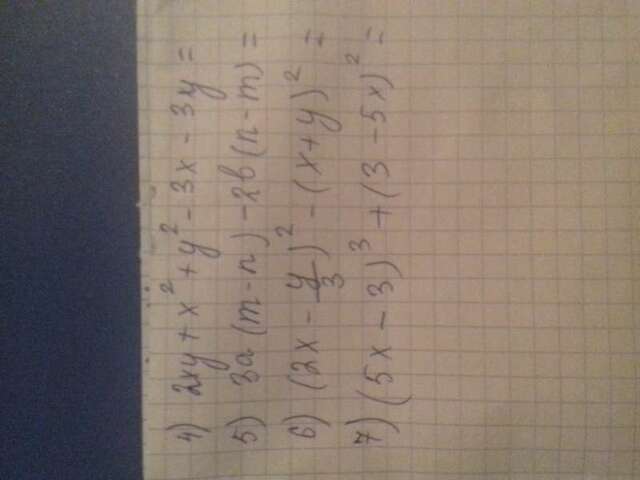 4) 2xy + x² + y² - 3x - 3y =
5) 3a (m - n) - 2b (n - m) =
6) (2x - y/3)² - (x + y)² =
7) (5x - 3)³ + (3 - 5x)² =